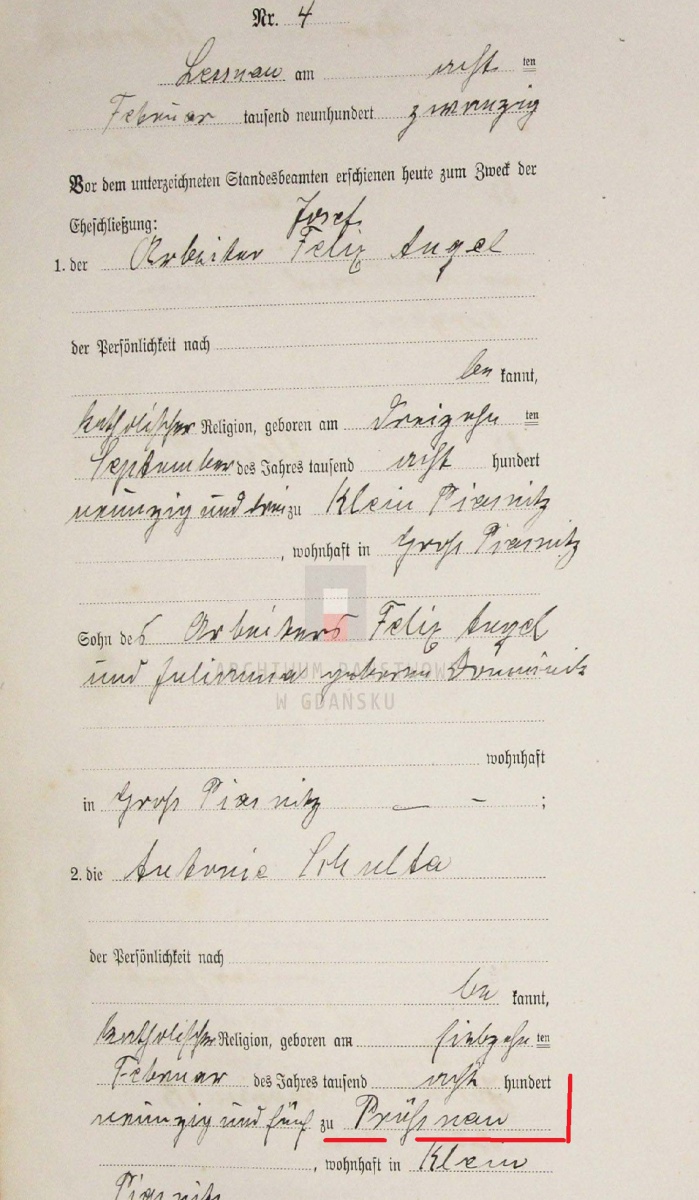 Nr. 4
Lessnau am acht ten
Februar tausend neunhundert zwanzig
Vor dem unterzeichneten Standesbeamten erschienen heute zum Zweck der
Eheschließung: Josef
1. der Arbeiter Felix Angel
der Persönlichkeit nach
be kannt,
katholischer Religion, geboren am dreizehn ten
September des Jahres tausend acht hundert
neunzig und drei zu Klein Piasnitz
, wohnhaft in Groß Piasnitz
Sohn des Arbeiters Felix Angel
und Julianna geborene
ARCHIWUM PAŃSTWOWE
W GDAŃSKU
wohnhaft
in Groß Piasnitz ;
2. die Antonie Schulta
der Persönlichkeit nach
be kannt,
katholischer Religion, geboren am siebzehn ten
Februar des Jahres tausend acht hundert
neunzig und fünf zu Prüßnau
, wohnhaft in Klein
Piasnitz